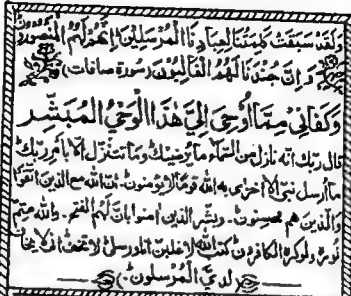 ولقد سبقت كلمتنا لعبادنا المرسلين انهم لهم المنصورون
و ان جندنا لهم الغالبون (سورة صافات)
وكفاني مما أوحي إلي هذا الوحي المبشر
قال ربك انه نازل من السماء ما يرضيك وما نتنزل الا بامر ربك
ما ارسل نبي الا اخزى به الله قوما لا يؤمنون۔ ان الله مع الذين اتقوا
والذين هم محسنون۔ وبشر الذين امنوا بان لهم الفتح۔ والله متم
نوره ولو كره الكافرون كتب الله لاغلبن انا ورسلي لا تخف اني لا يخاف
لدي المرسلون